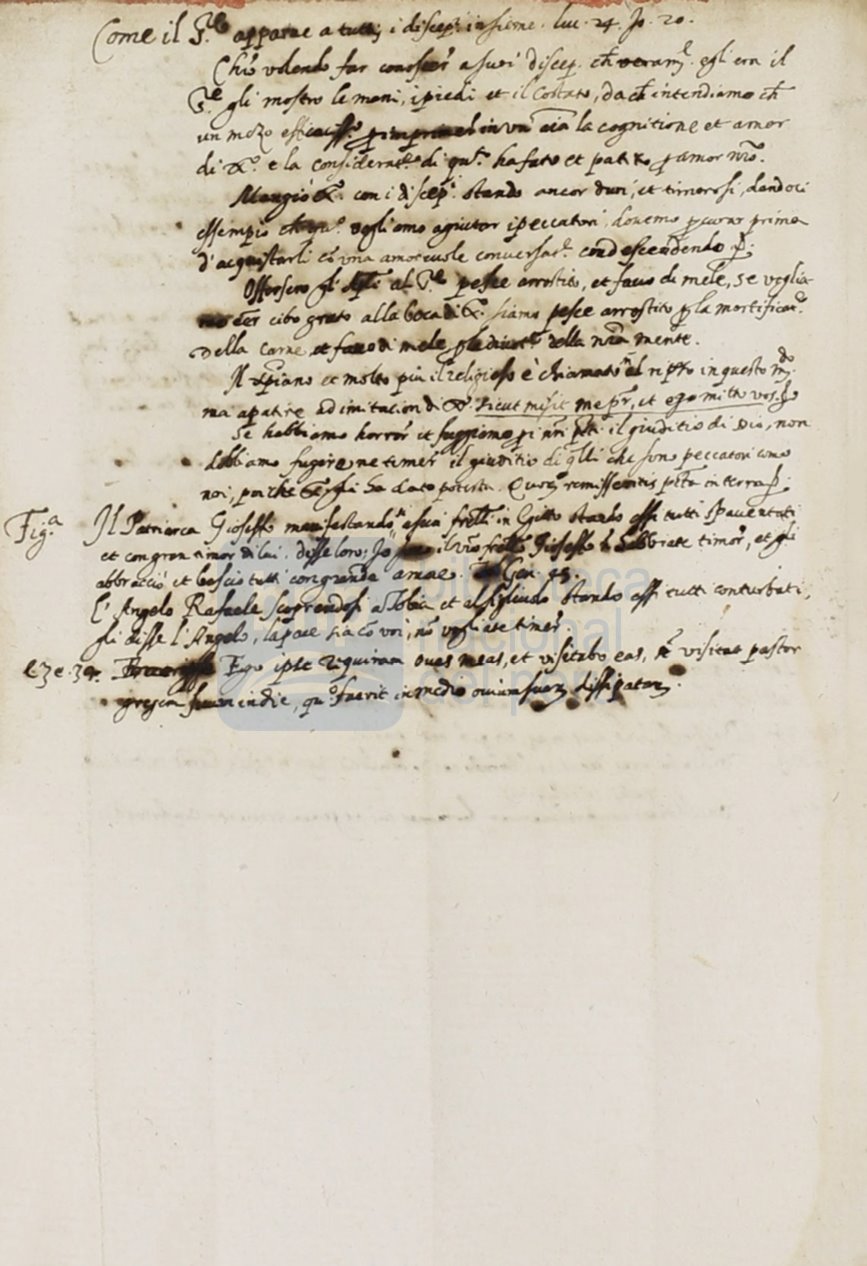 Come il S.re apparue a tutti i discep.i insieme. luc. 24. Jo. 20.
Chr̃o volendo far conoscer a suoi discep. ch̃ veram.te egli era il
S.re gli mostro le mani, i piedi et il costato, da ch̃ intendiamo ch̃
un mezo efficaciss.o la cognitione et amor
di X.o e la considerat.ne di qu.to ha fato et patito ꝑ amor nr̃o.
Mangiò X.o con i discep.i stando ancor duri, et timorosi, dandoci
essempio ch̃ vogliamo agiutar i peccatori, douemo prima
d'acquistarli cõ una amoreuole conuersat.e condescendendo ꝑ.
Offersero gli al S.re pesce arrostito, et fauo di mele, se voglia-
mo esser cibo grato alla boca di X.o siamo pesce arrostito ꝑ la mortificat.e
della carne, et fauo di mele ꝑ la della nr̃a mente.
Il xp̃iano et molto più il religioso è chiamato al riposo in questo m.do
ma a patire ad imitacion di X.o sicut misit me pr̃, et ego mitto vos.
Se habbiamo horror et fuggiamo ꝑ i nr̃i il giuditio di Dio, non
dobbiamo fugire ne timer il giuditio di q̃lli che sono peccatori como
noi, poiche gli ha dato potestà. Quor̃ remisseritis in terra ꝑ.
Fig.a Il Patriarca Gioseffo manifestandosi a suoi fr̃elli in Egitto stando essi tutti spauentati
et con gran timor di lui, disse loro; Io il vr̃o Gioseffo timor, et gli
abbracciò et basciò tutti con grande amore. Gen. 45.
L'Angelo Rafaele scoprendosi a Tobia et al figliuolo stando essi tutti conturbati,
gli disse l'Angelo, la pace sia cõ voi, nõ vogliate timer.
Eze. 34. Ego ipse requiram oues meas, et visitabo eas, sicut visitat pastor
gregem suum in die, qñ fuerit in medio ouium suar̃ dissipatar̃.